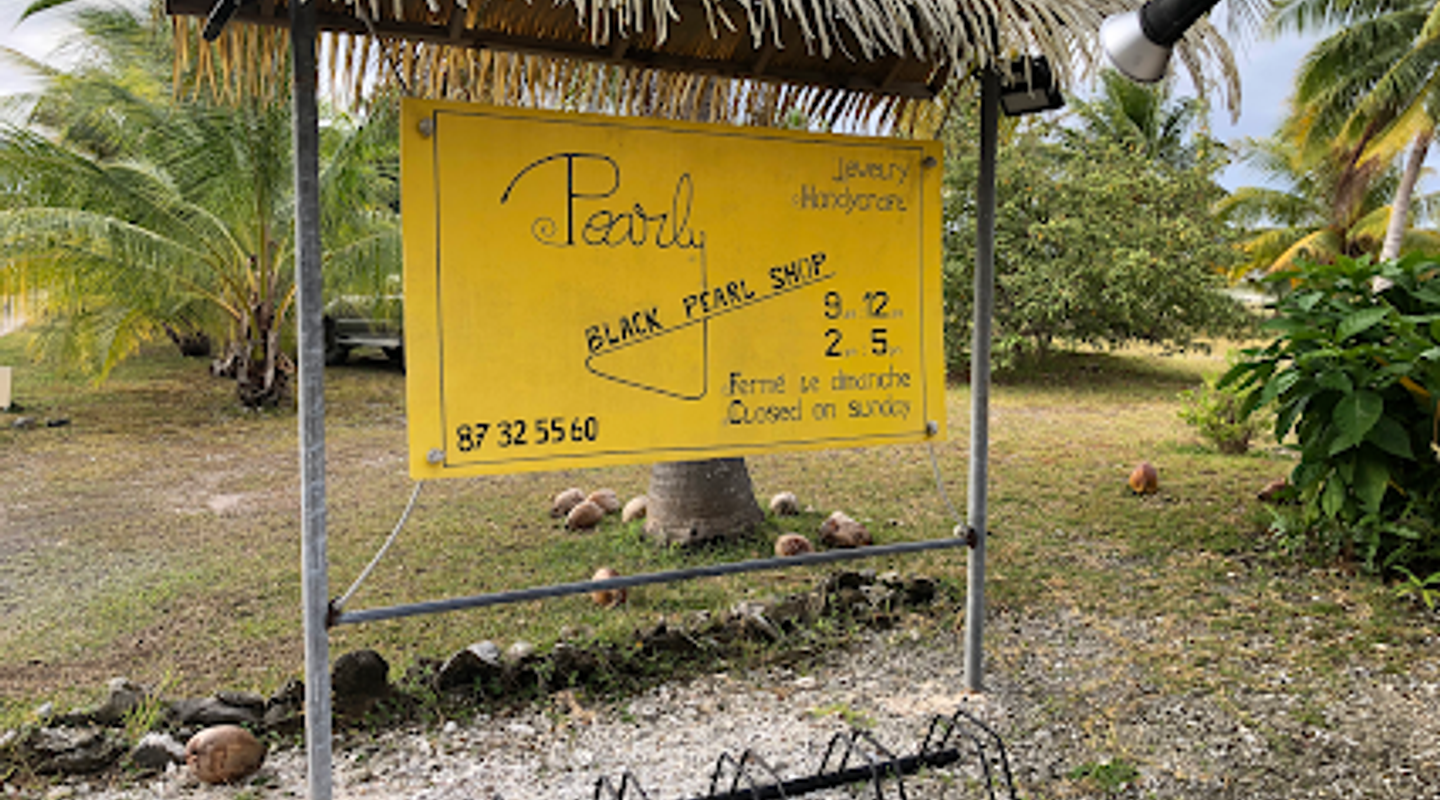 Pearly
Jewelry
Handycraft
BLACK PEARL SHOP
9am:12pm
2pm:5pm
Fermé le dimanche
Closed on sunday
87 32 55 60